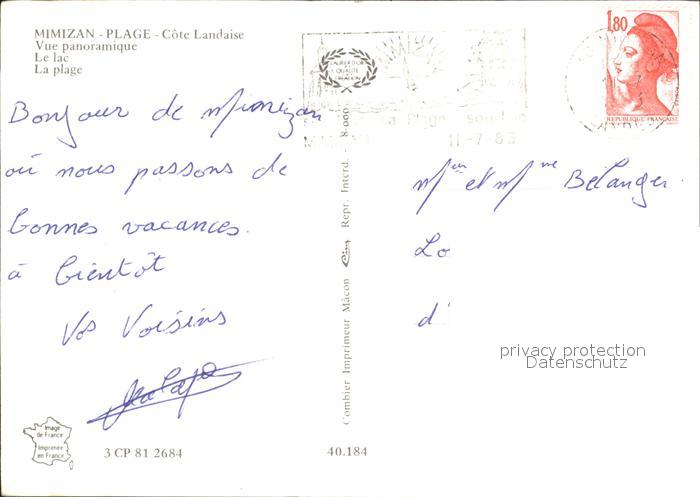 MIMIZAN - PLAGE - Côte Landaise
Vue panoramique
Le lac
La plage
Bonjour de Mimizan
où nous passons de
bonnes vacances.
à bientôt
Vos Voisins
Image
de France
Imprimée
en France
3 CP 81 2684
40.184
Combier Imprimeur Mâcon Cim Repr. Interd.
LAURIER D'OR
QUALITE
CREATION
La Plage son lac
11-7 83
1,80
REPUBLIQUE FRANÇAISE
Mr et Mme Belanger.
Lo
d'
privacy protection
Datenschutz